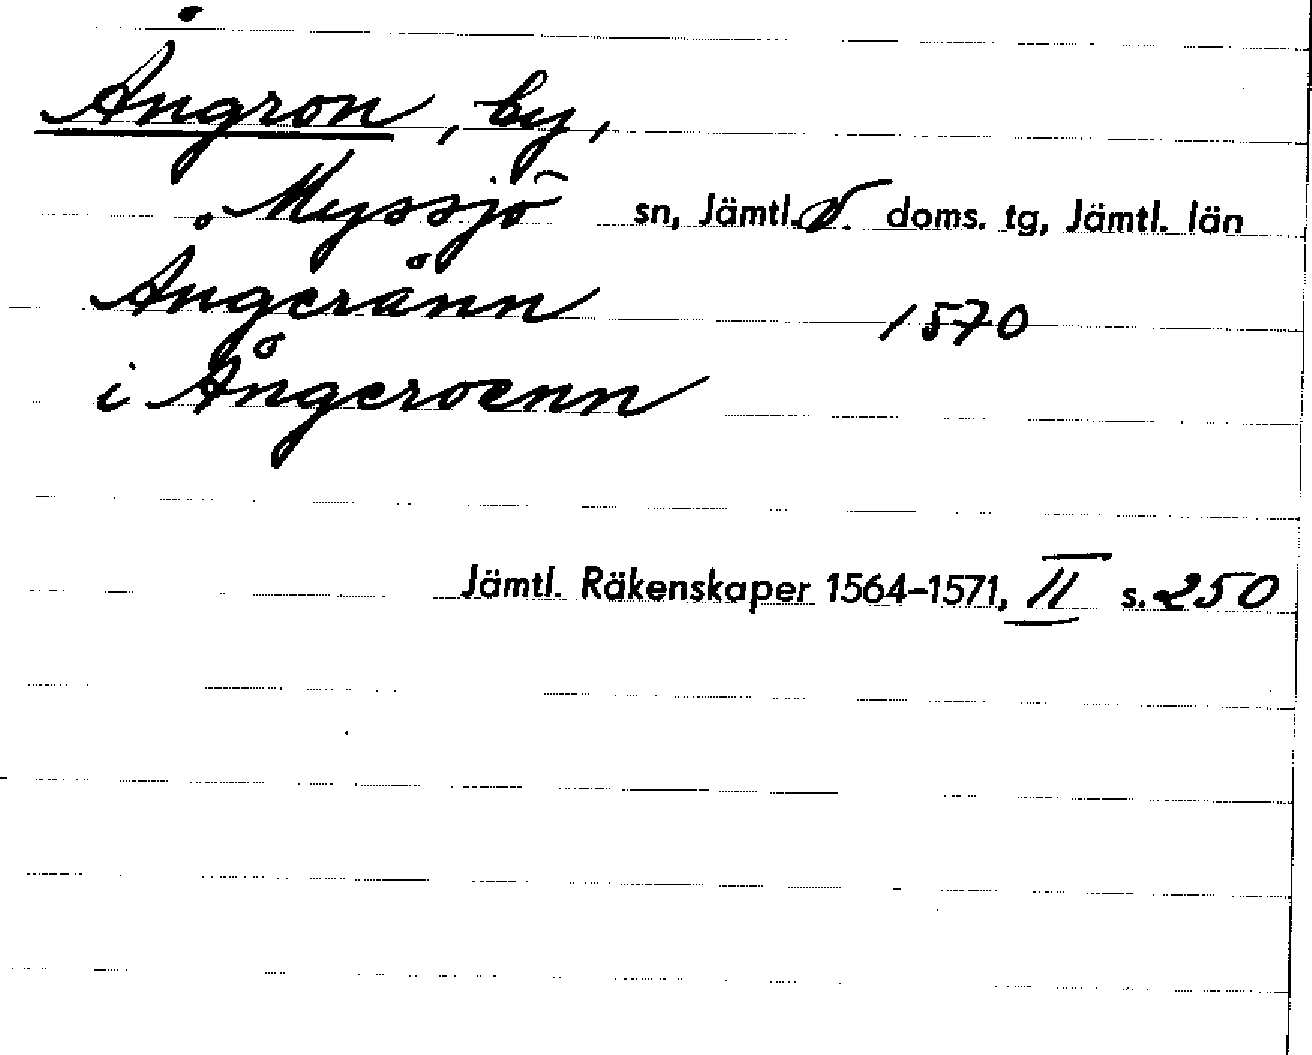 Ångron, by,
Myssjö sn, Jämtl. v. doms. tg, Jämtl. län
Ångerånn 1570
i Ångeroenn
Jämtl. Räkenskaper 1564-1571, II s. 250